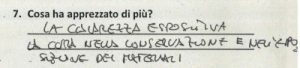 7. Cosa ha apprezzato di più?
LA CHIAREZZA ESPOSITIVA
LA CURA NELLA CONSERVAZIONE E NELL'ESPO
SIZIONE DEI MATERIALI